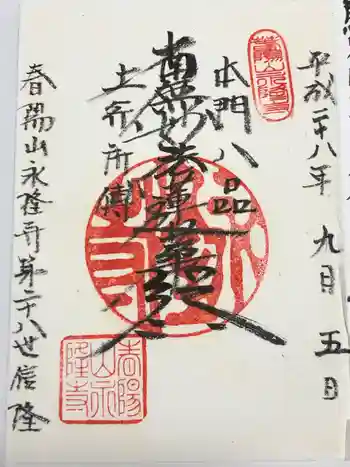 平成二十八年 九月 五日
本門八品
南無妙法蓮華経
上行所傳
春陽山永隆寺第二十八世信隆
春陽山永隆寺